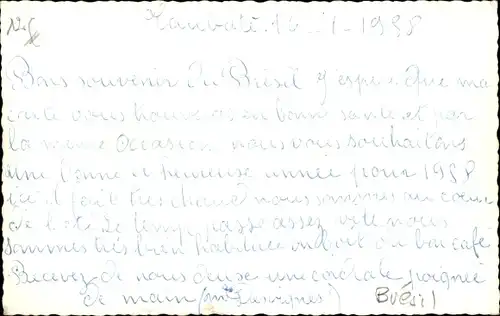 Taubaté 16-1-1958
Bons souvenir du Brésil J'espère que ma
carte vous trouveras en bonne santé et par
la même occasion nous vous souhaitons
une bonne et heureuse année pour 1958
ici il fait très chaud nous sommes au coeur
de l'été le temp passe assez vite nous
sommes très bien habituée on boit du bon café
Recevez de nous deuse une cordiale poignée
de main (Mme Lavignes)
Brésil